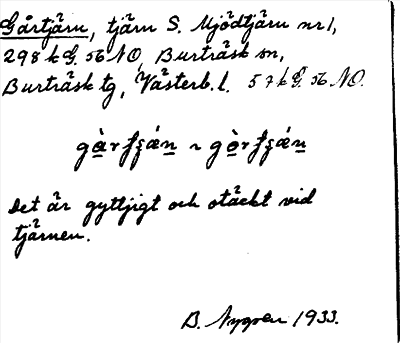 Gårtjärn, tjärn S. Mjödtjärn nr 1,
298 k G. 56 NO, Burträsk sn,
Burträsk tg, Västerb. l. 57 k G. 56 NO.
Det är gyttjigt och otäckt vid
tjärnen.
B. Nygren 1933.